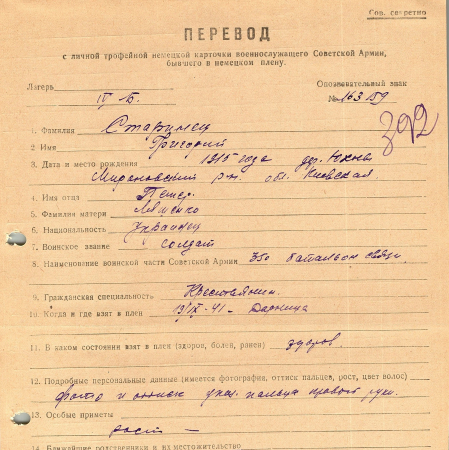 Сов. секретно
ПЕРЕВОД
с личной трофейной немецкой карточки военнослужащего Советской Армии,
бывшего в немецком плену.
Лагерь IV Б. Опознавательный знак
№ 163159
392
1. Фамилия Старинец
2. Имя Григорий
3. Дата и место рождения 1915 года дер. Юхны
Мироновский р-н. обл. Киевская
4. Имя отца Петер.
5. Фамилия матери Ляшенко
6. Национальность Украинец
7. Воинское звание солдат
8. Наименование воинской части Советской Армии 350 батальон связи.
9. Гражданская специальность Крестьянин.
10. Когда и где взят в плен 19/IX-41 - Дарница
11. В каком состоянии взят в плен (здоров, болен, ранен) здоров.
12. Подробные персональные данные (имеется фотография, оттиск пальцев, рост, цвет волос)
фото и оттиск указ. пальца правой руки.
13. Особые приметы
рост —
14. Ближайшие родственники и их местожительство